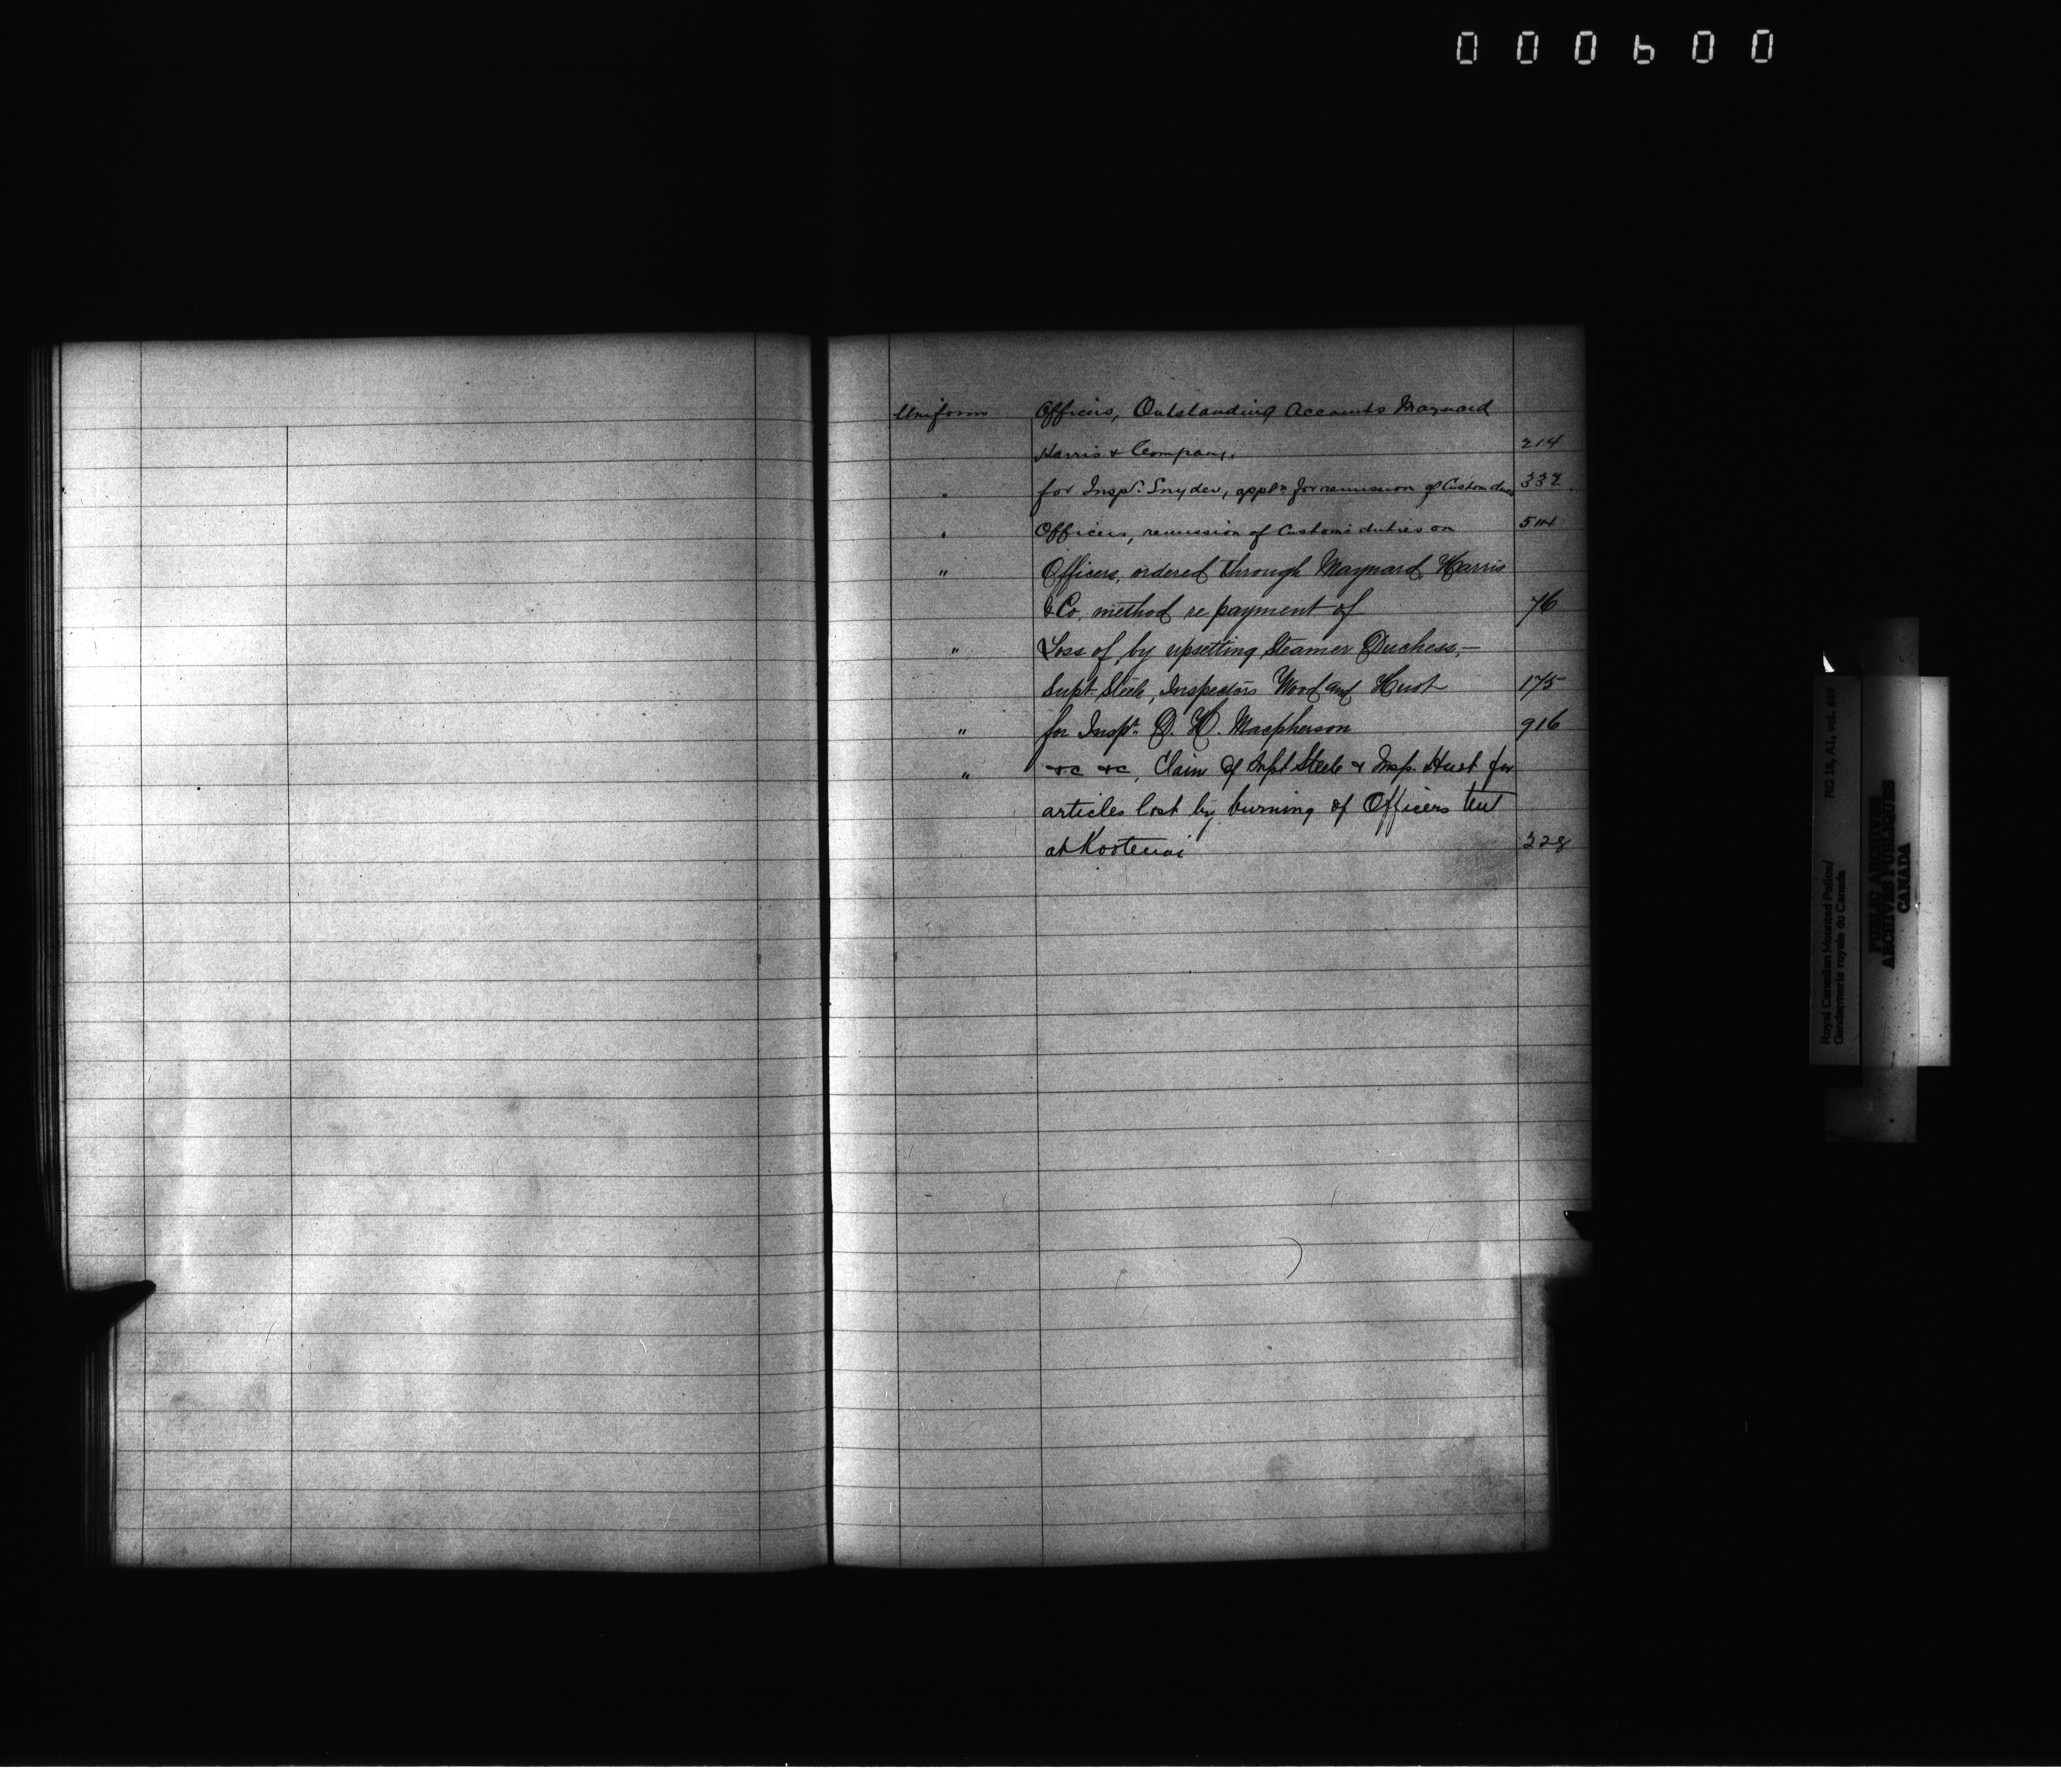 000600
Uniform Officers, Outstanding Accounts Maynard
Harris & Company. 214
" for Inspr. Snyder, appln for remission of Custom dues 332
" Officers, remission of Customs duties on 514
" Officers, ordered through Maynard Harris
& Co. method re payment of 76
" Loss of, by upsetting Steamer Duchess,—
Supt Steele, Inspectors Wood and Huot 175
" for Inspr. D. H. Macpherson 916
" &c &c, Claim of Supt Steele & Insp. Huot for
articles lost by burning of Officers tent
at Kootenai 328
Royal Canadian Mounted Police/
Gendarmerie royale du Canada
RG 18, A1, vol.
PUBLIC ARCHIVES
ARCHIVES PUBLIQUES
CANADA